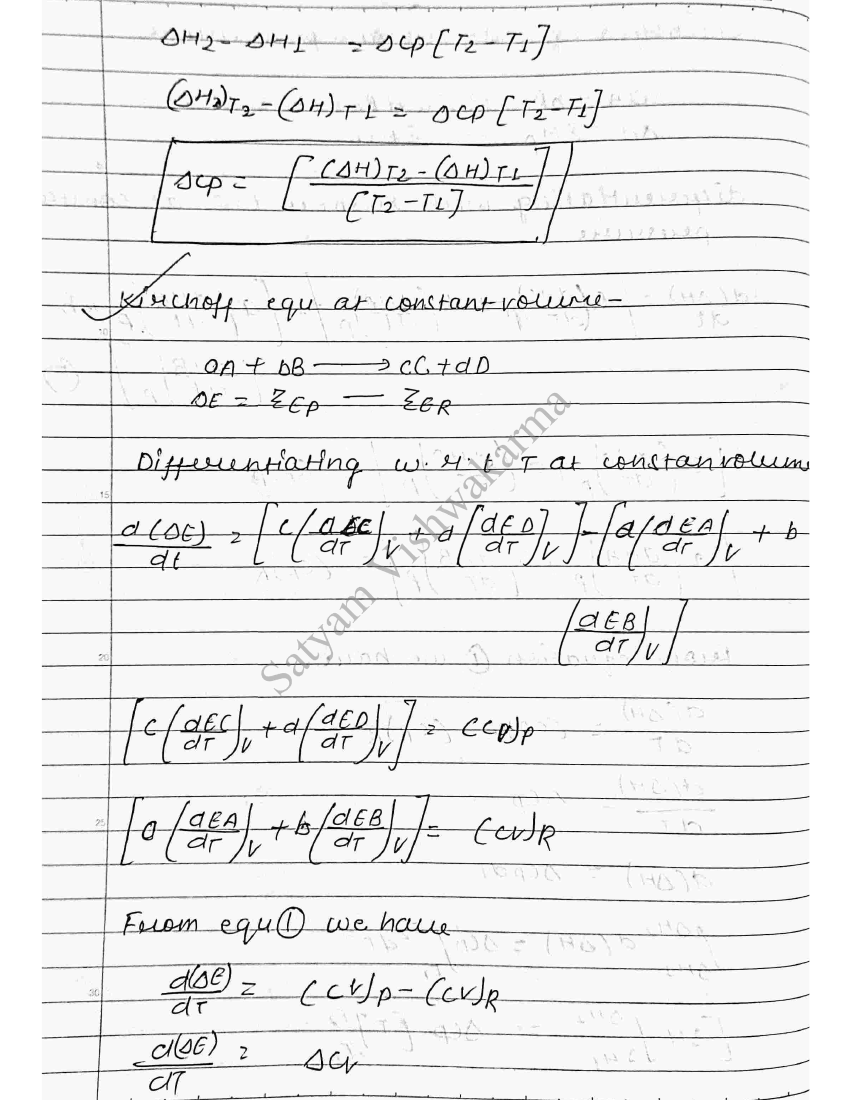 ΔH2 - ΔH1 = ΔCp [T2 - T1]
(ΔH2)T2 - (ΔH)T1 = ΔCp [T2 - T1]
ΔCp = [(ΔH)T2 - (ΔH)T1 / [T2 - T1]]
Kirchoff equ at constant volume -
aA + bB ⟶ cC + dD
ΔE = ΣEP — ΣER
Differentiating w.r.t T at constanvolum
d(ΔE)/dt = [c(dEC/dT)V + d[dED/dT)V] - [a(dEA/dT)V + b
(dEB/dT)V]
[c(dEC/dT)V + d(dED/dT)V] = (Cv)P
[a(dEA/dT)V + b(dEB/dT)V] = (Cv)R
From equ ① we have
d(ΔE)/dT = (Cv)P - (Cv)R
d(ΔE)/dT = ΔCv
Satyam Vishwakarma
15
20
25
30